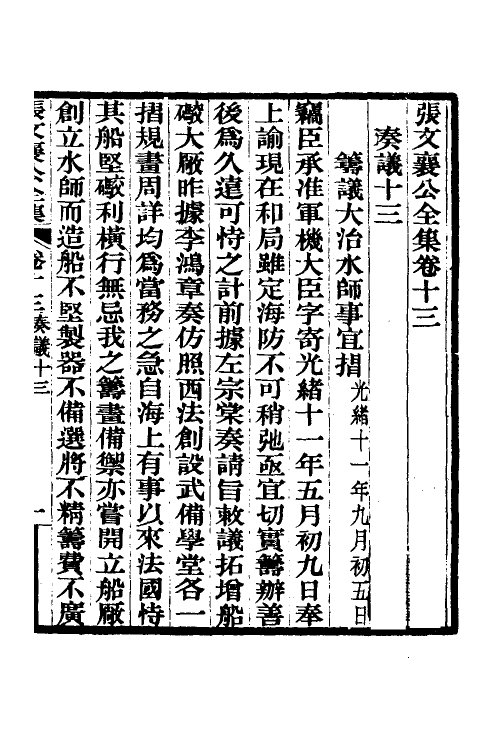 張文襄公全集卷十三
奏議十三
籌議大治水師事宜摺光緒十一年九月初五日
竊臣承准軍機大臣字寄光緒十一年五月初九日奉
上諭現在和局雖定海防不可稍弛亟宜切實籌辦善
後爲久遠可恃之計前據左宗棠奏請旨敕議拓增船
礮大厰昨據李鴻章奏仿照西法創設武備學堂各一
摺規畫周詳均爲當務之急自海上有事以來法國恃
其船堅礮利橫行無忌我之籌畫備禦亦嘗開立船厰
創立水師而造船不堅製器不備選將不精籌費不廣
張文襄公全集
卷十三奏議十三
一